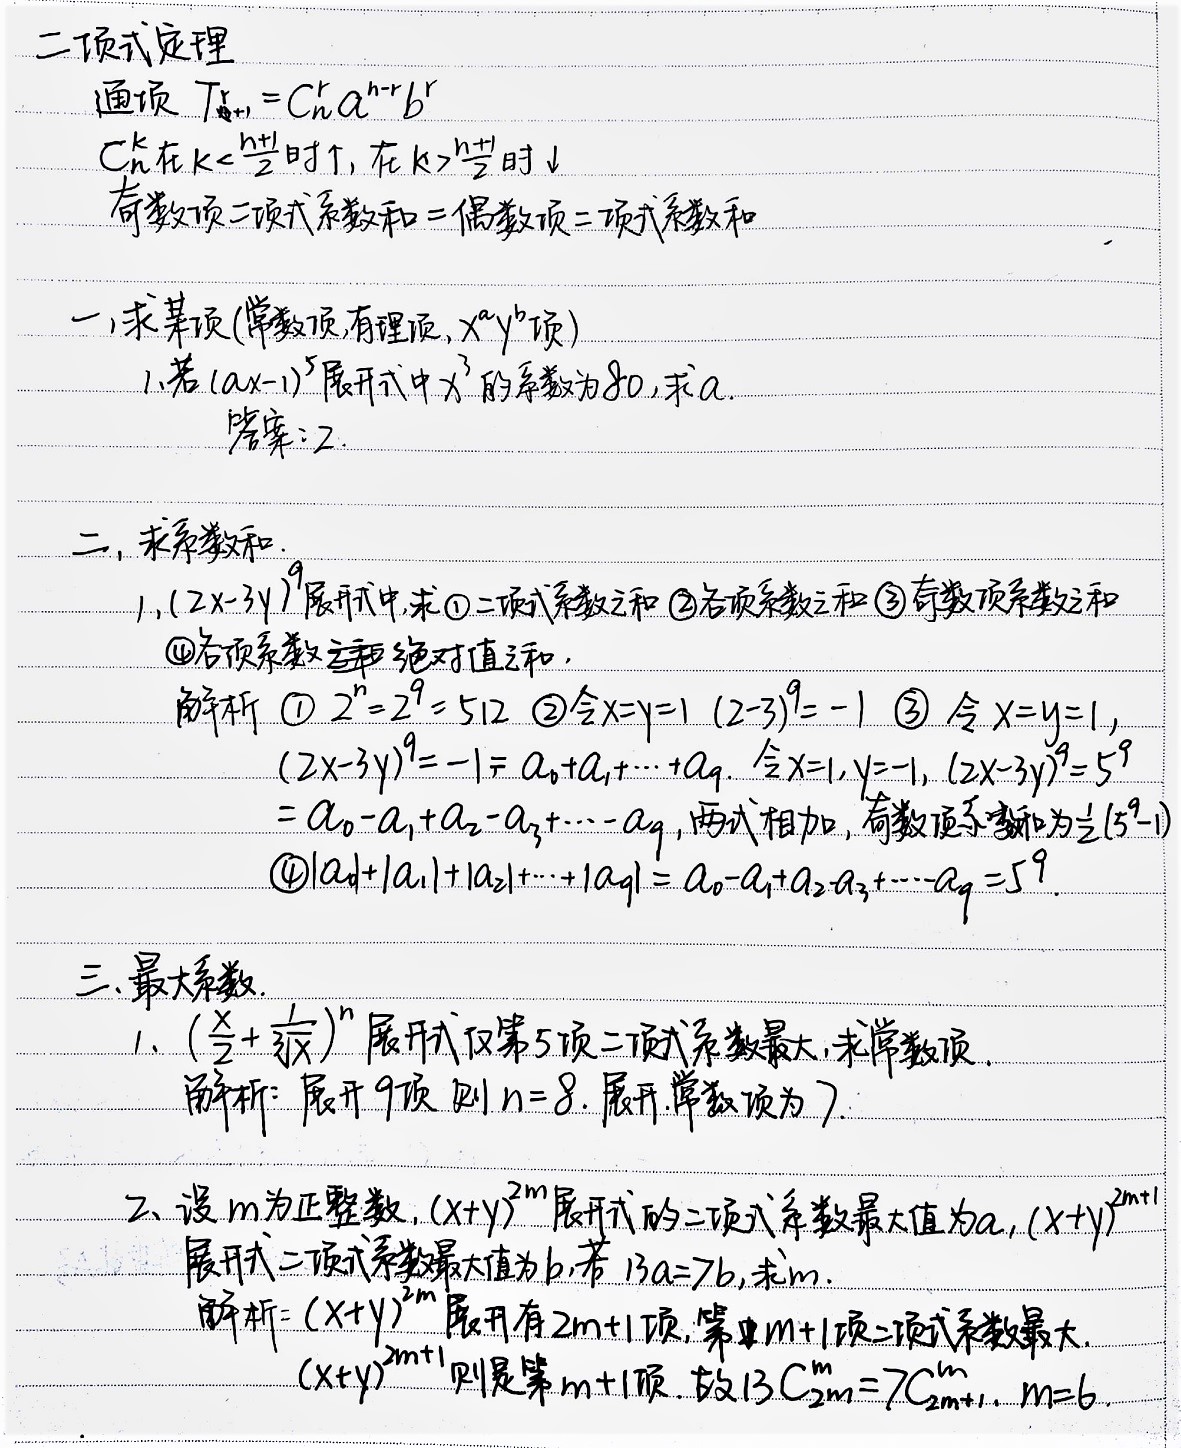 二项式定理
通项 Tr+1 = Cₙʳ aⁿ⁻ʳ bʳ
Cₙᵏ 在 k < (n+1)/2 时↑, 在 k > (n+1)/2 时↓
奇数项二项式系数和 = 偶数项二项式系数和
一, 求某项(常数项,有理项, xᵃyᵇ项)
1,若(ax-1)⁵展开式中x³的系数为80,求a.
答案: 2.
二, 求系数和.
1, (2x-3y)⁹展开式中,求①二项式系数之和 ②各项系数之和 ③奇数项系数之和
④各项系数绝对值之和.
解析 ① 2ⁿ=2⁹=512 ②令x=y=1 (2-3)⁹=-1 ③ 令 x=y=1,
(2x-3y)⁹=-1= a₀+a₁+…+a₉. 令x=1, y=-1, (2x-3y)⁹=5⁹
= a₀-a₁+a₂-a₃+…-a₉, 两式相加, 奇数项系数和为½(5⁹-1)
④|a₀|+|a₁|+|a₂|+…+|a₉| = a₀-a₁+a₂-a₃+…-a₉ =5⁹.
三、最大系数.
1、(x/2 + 1/∛x)ⁿ 展开式仅第5项二项式系数最大,求常数项.
解析: 展开9项 则 n=8. 展开.常数项为7.
2、设m为正整数, (x+y)²ᵐ展开式的二项式系数最大值为a, (x+y)²ᵐ⁺¹
展开式二项式系数最大值为b,若 13a=7b,求m.
解析: (x+y)²ᵐ展开有2m+1项, 第m+1项二项式系数最大.
(x+y)²ᵐ⁺¹则是第m+1项. 故13 C₂ₘᵐ=7C₂ₘ₊₁ᵐ. m=6.